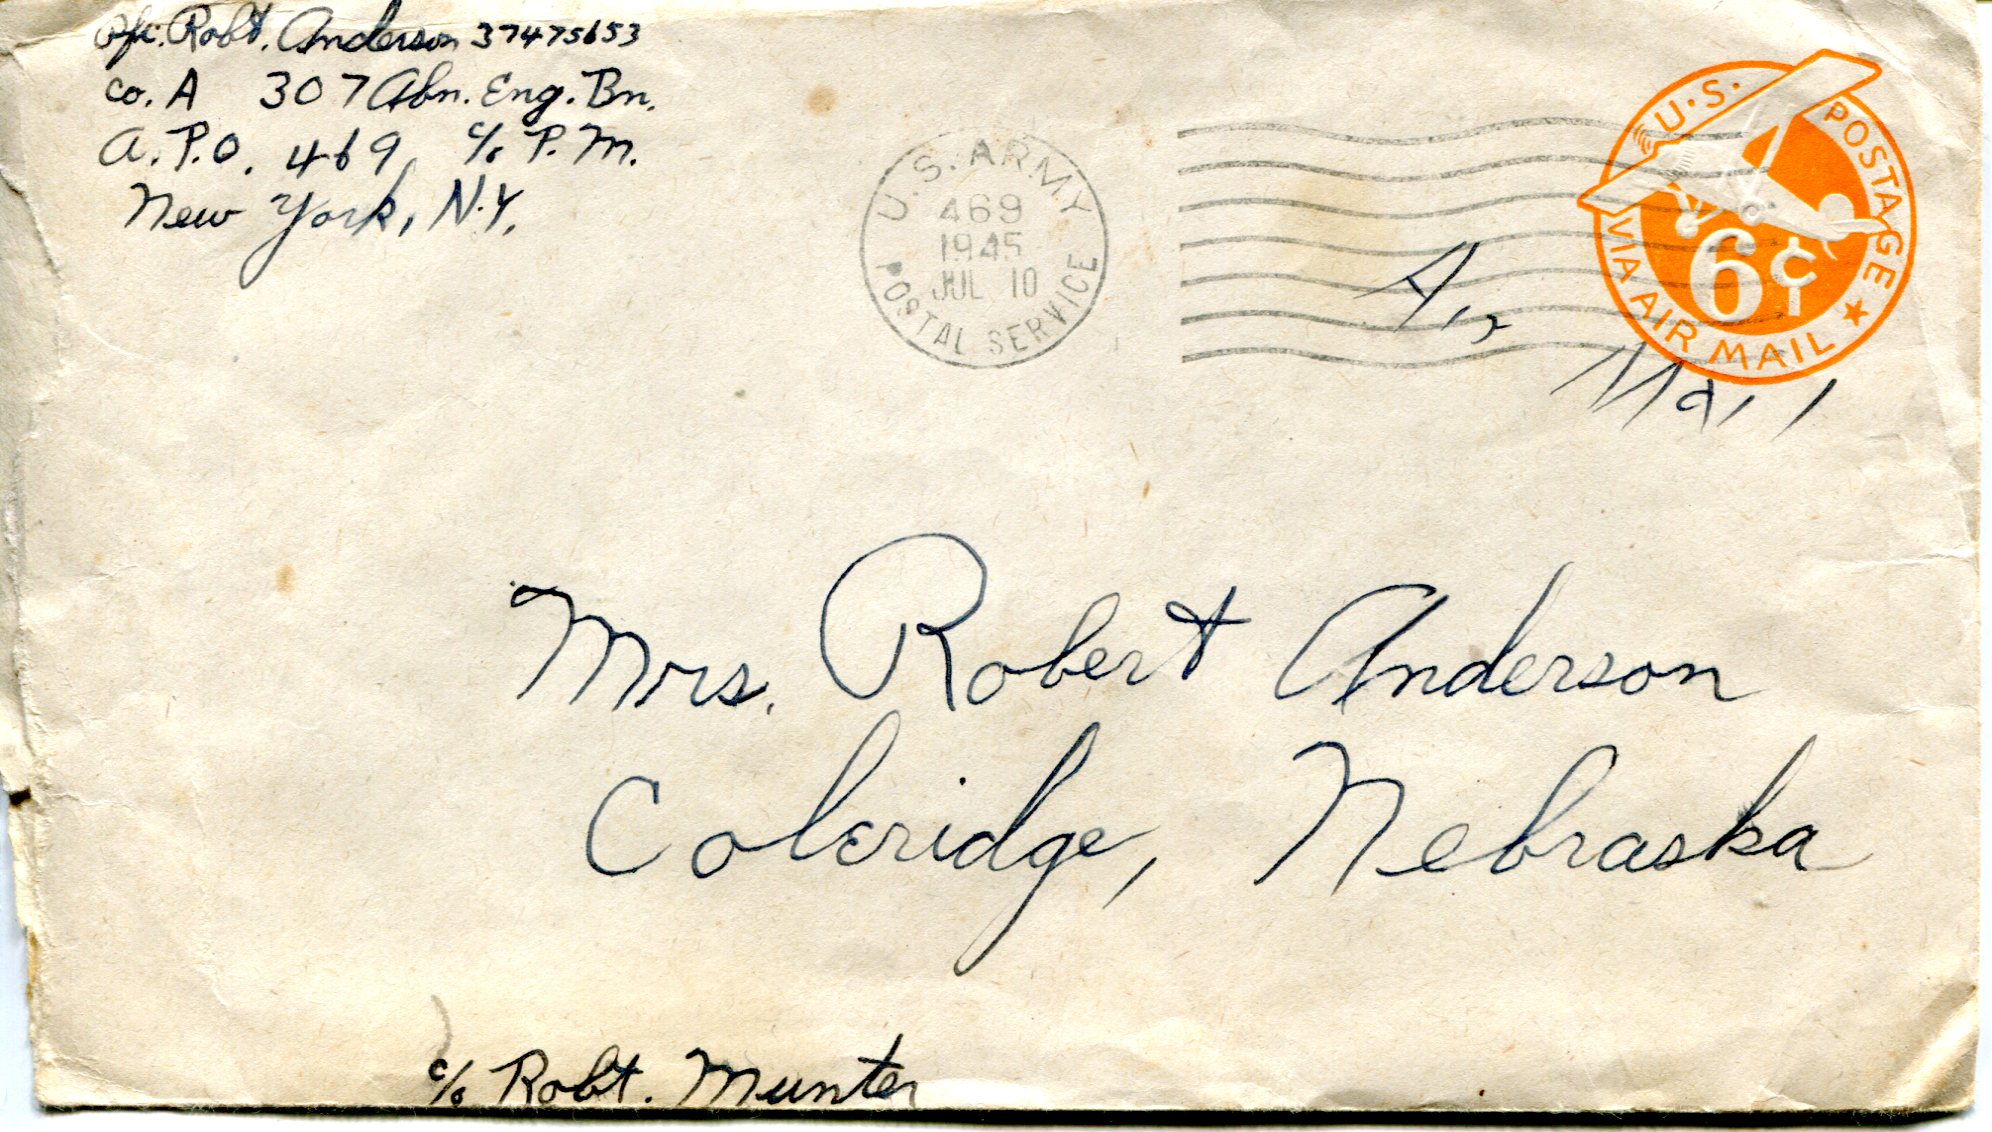 Pfc. Robt. Anderson 37475653
Co. A 307 Abn. Eng. Bn.
A.P.O. 469 c/o P.M.
New York, N.Y.
U.S. ARMY
469
1945
JUL 10
POSTAL SERVICE
U.S. POSTAGE
6¢
VIA AIR MAIL
Air
Mail
Mrs. Robert Anderson
Coleridge, Nebraska
c/o Robt. Munter